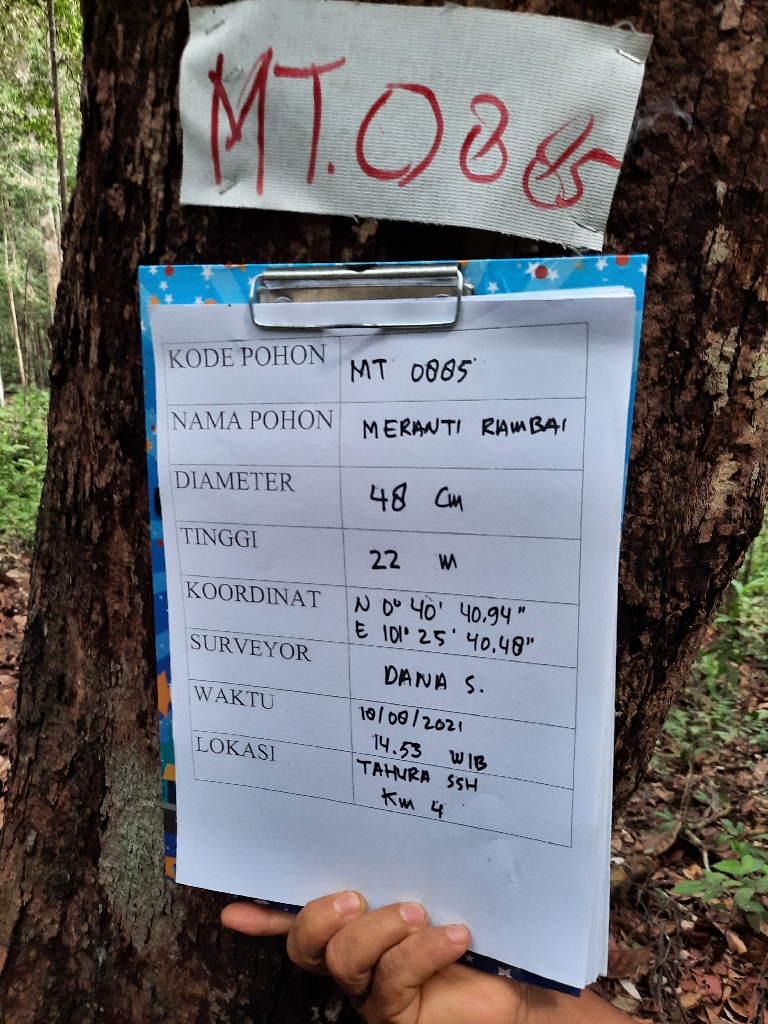 MT.0885
KODE POHON MT 0885
NAMA POHON MERANTI RAMBAI
DIAMETER 48 Cm
TINGGI 22 m
KOORDINAT N 0° 40' 40.94"
E 101° 25' 40.48"
SURVEYOR DANA S.
WAKTU 18/08/2021
14.53 WIB
LOKASI TAHURA SSH
Km 4